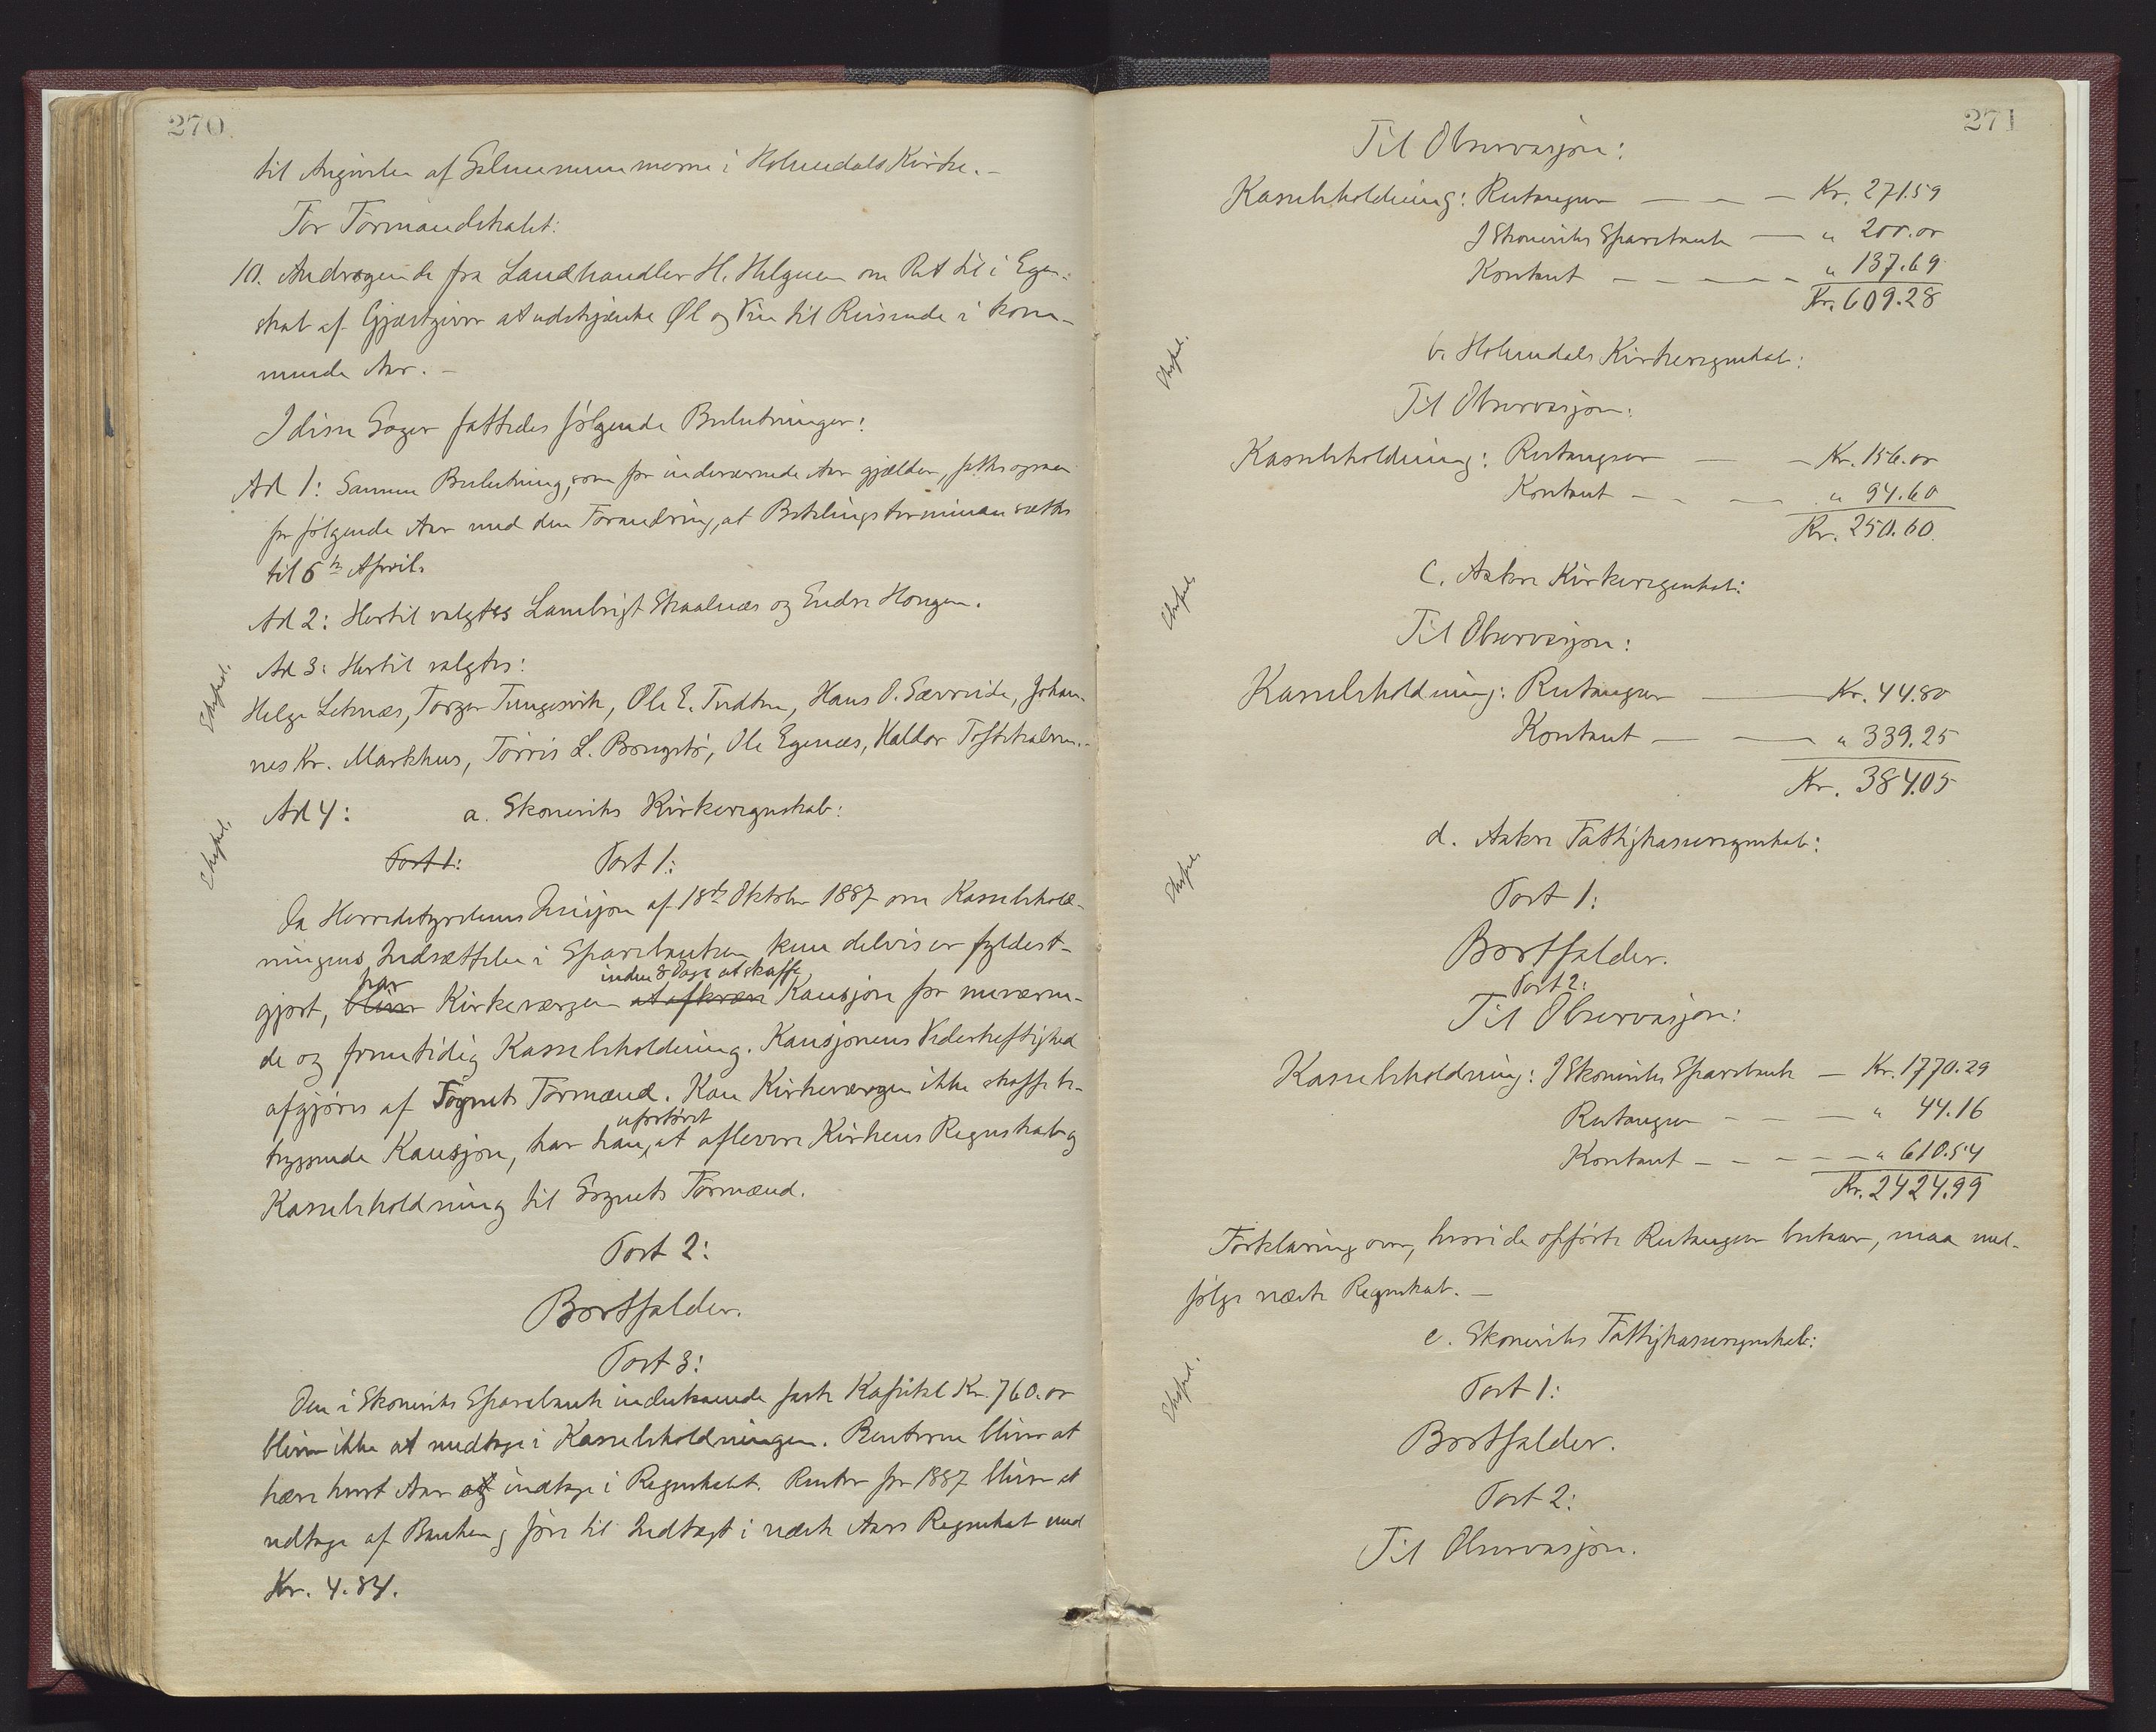 270
til Angivelse af Salmenummerne i Holmedals Kirke. –
For Formandskabet:
10. Andragende fra Landhandler H. Helgesen om Ret til i Egen-
skab af Gjæstgiver at udskjænke Øl og Vin til Reisende i kom-
mende Aar. –
I disse Sager fattedes følgende Beslutninger:
Ad 1: Samme Beslutning, som for indeværende Aar gjælder, fattes ogsaa
for følgende Aar med den Forandring, at Betalingsterminen sættes
til 5te April.
Ad 2: Hertil valgtes Lambrigt Skaalnæs og Endre Hongen.
Ad 3: Hertil valgtes:
Helge Leknæs, Torger Tungesvik, Ole E. Tvedten, Hans O. Sævereide, Johan-
nes Kr. Markhus, Tørris L. Brugstø, Ole Egenæs, Haldor Toftekalven. –
Exsped.
Ad 4: a. Skonevik Kirkeregnskab:
Exsped.
Post 1: Post 1:
Da Herredstyrelsens Desisjon af 18de Oktober 1887 om Kassebehold-
ningens Indsættelse i Sparebanken kun delvis er fyldest-
har inden 8 Dage at skaffe
gjort, bliver Kirkeværgen at afkræve Kausjon for nuværen-
de og fremtidig Kassebeholdning. Kausjonens Vederheftighed
afgjøres af Sognets Formænd. Kan Kirkeværgen ikke skaffe be-
ufortøvet
tryggende Kausjon, har han, at aflevere Kirkens Regnskab og
Kassebeholdning til Sognets Formænd.
Post 2:
Bortfalder.
Post 3:
Den i Skoneviks Sparebank indestaaende faste Kapital Kr. 760.00
bliver ikke at medtage i Kassebeholdningen. Renterne bliver at
hæve hvert Aar og indtage i Regnskabet. Renter for 1887 bliver at
udtage af Banken og føre til Indtægt i næste Aars Regnskab med
Kr. 4.84.
271
Til Observasjon:
Kassebeholdning: Restanser — — — Kr. 271.59
I Skoneviks Sparebank — " 200.00
Kontant — — — — — " 137.69
Kr. 609.28
Exsped.
b. Holmedals Kirkeregnskab:
Til Observasjon:
Kassebeholdning: Restanser — — Kr. 156.00
Kontant — — — " 94.60
Kr. 250.60
Exsped.
c. Aakre Kirkeregnskab:
Til Observasjon:
Kassebeholdning: Restanser — Kr. 44.80
Kontant — — " 339.25
Kr. 384.05
Exsped.
d. Aakre Fattigkasseregnskab:
Post 1:
Bortfalder.
Post 2:
Til Observasjon:
Kassebeholdning: I Skoneviks Sparebank — Kr. 1770.29
Restanser — — — " 44.16
Kontant — — — — — " 610.54
Kr. 2424.99
Forklaring over, hvori de opførte Restanser bestaar, maa med-
følge næste Regnskab. —
Exsped.
e. Skoneviks Fattigkasseregnskab:
Post 1:
Bortfalder.
Post 2:
Til Observasjon.